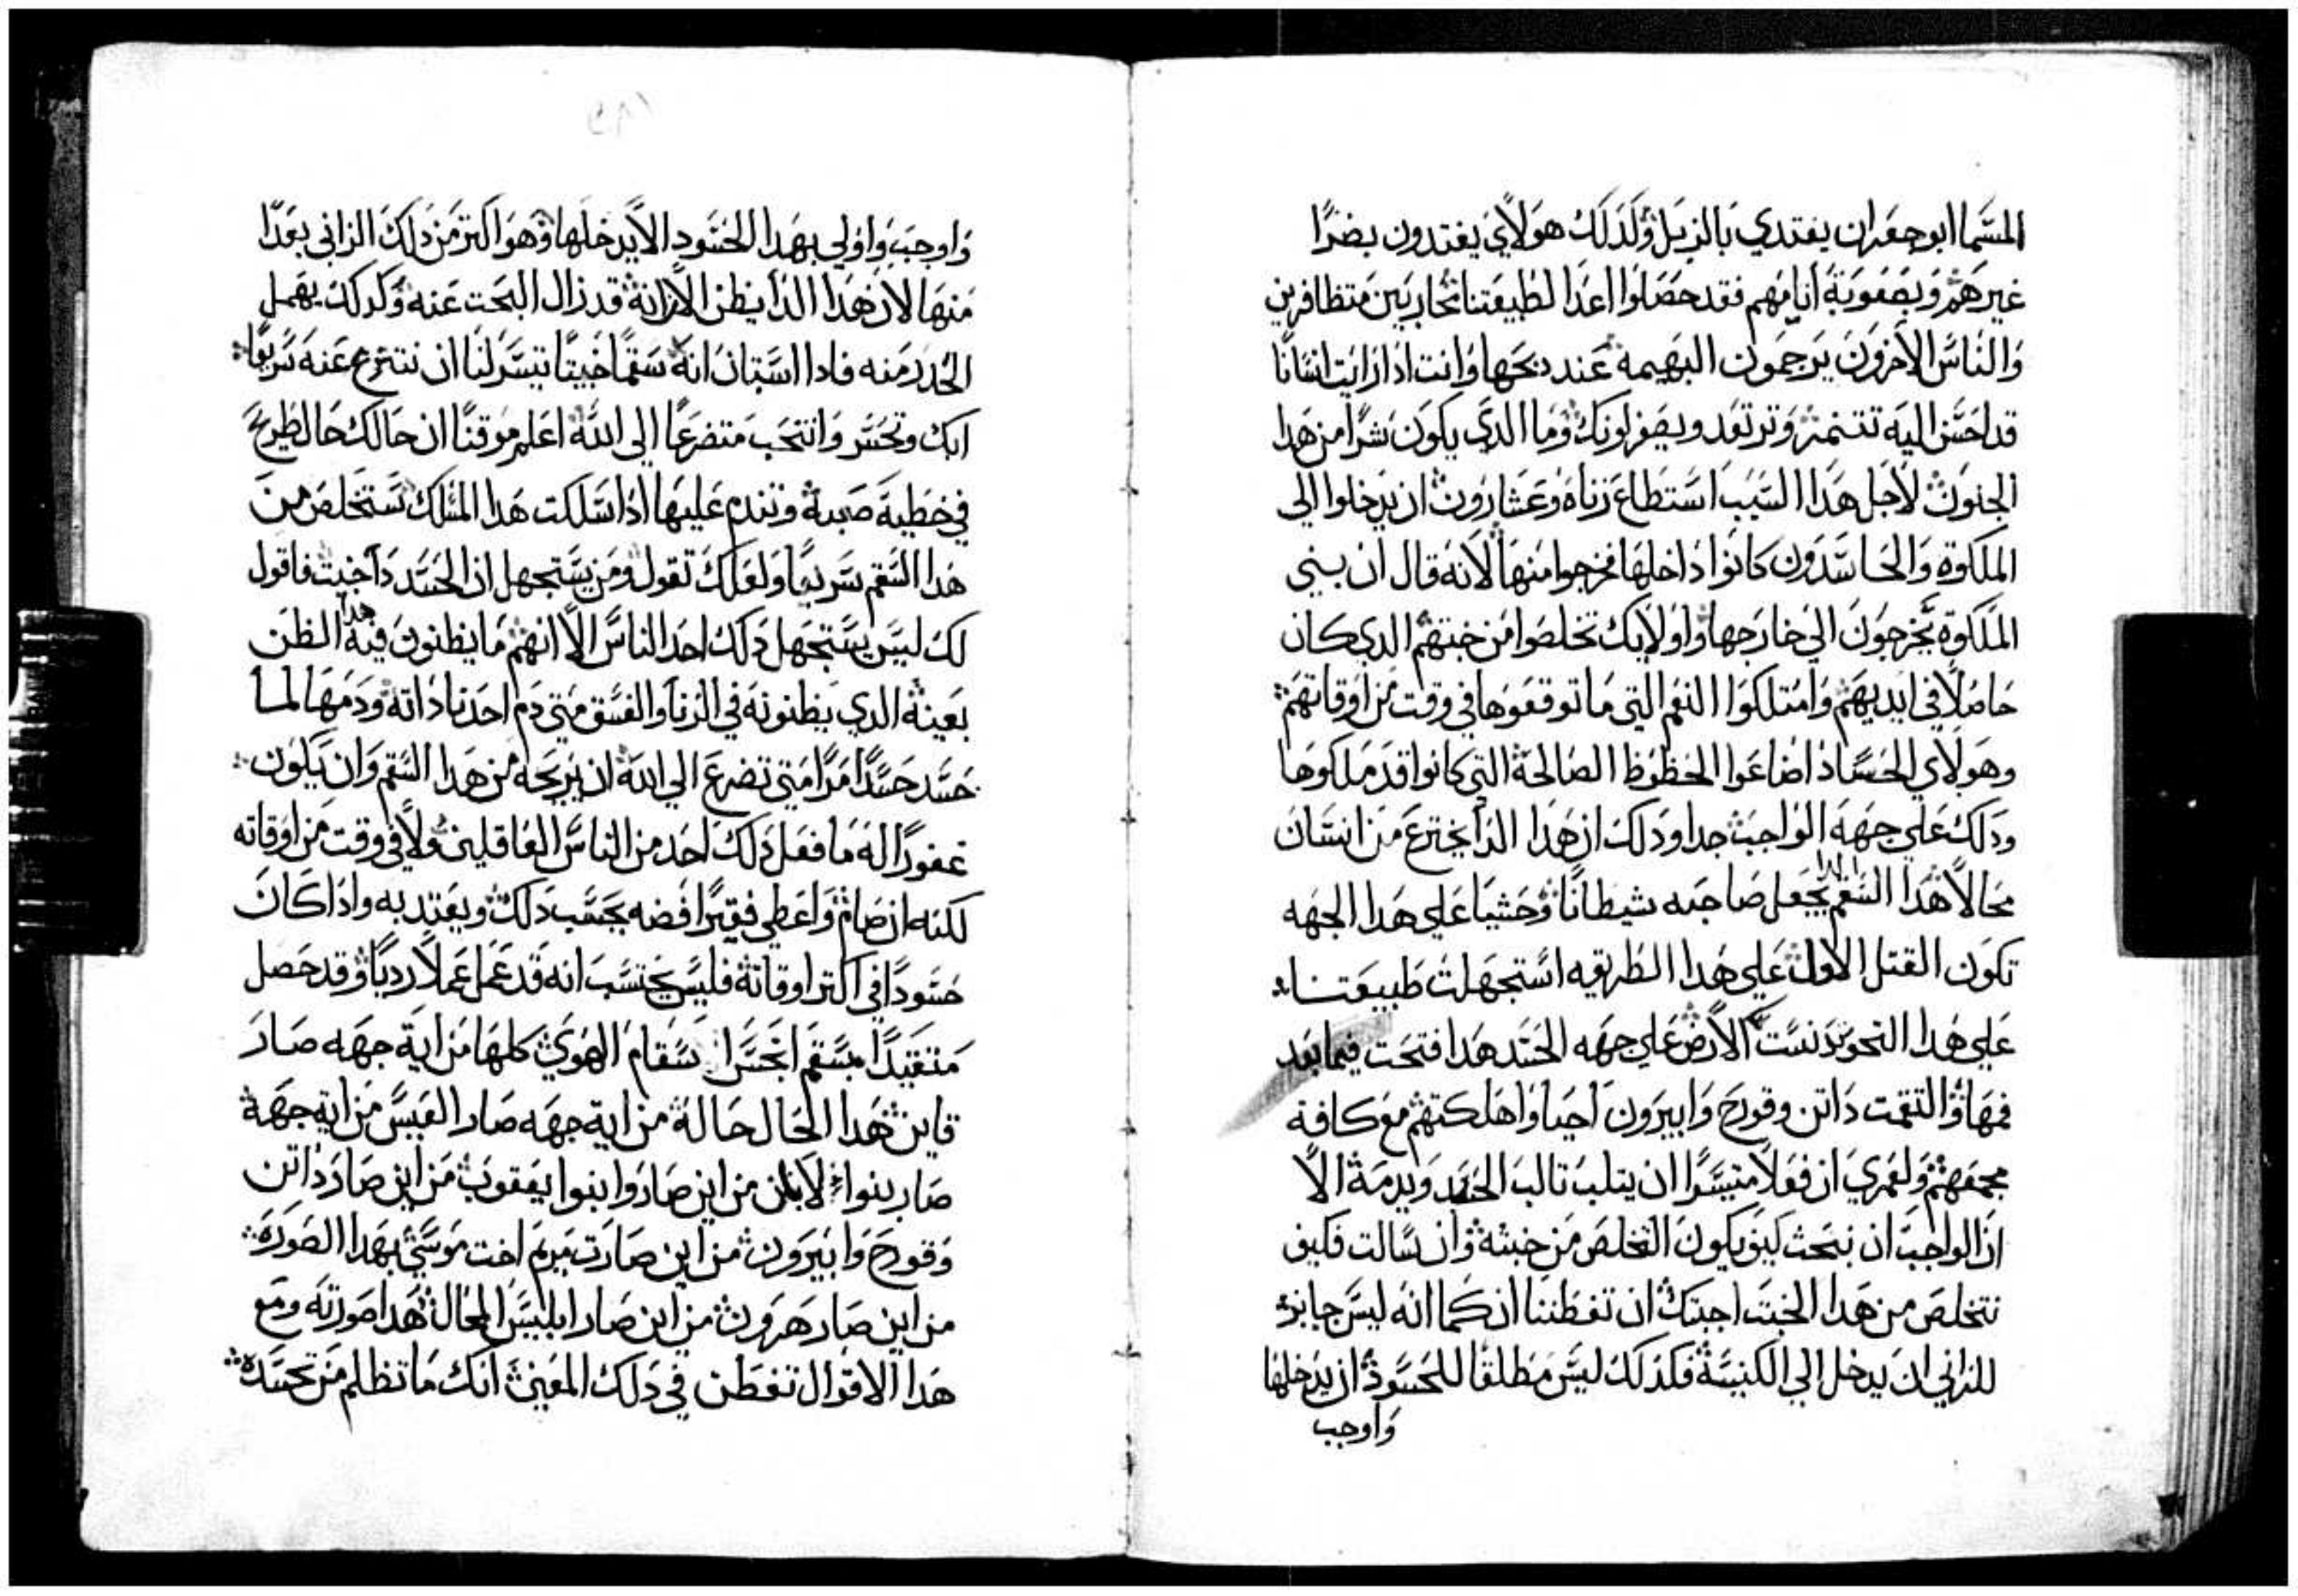 المسما ابو جعران يغتدي بالزبل وكدلك هولاي يغتدون بضرا
غيرهم وبصعوبة انامهم فقد حصلوا اعدا لطبيعتنا محاربين متظافرين
والناس الاخرون يرحمون البهيمة عند دبحها وانت ادا رايت انسانا
قد احسن اليه تتنمر وترتعد ويصفر لونك وما الدي يكون شرا من هدا
الجنون لاجل هدا السبب استطاع زناه وعشارون ان يدخلوا الي
الملكوة والحاسدون كانوا داخلها فخرجوا منها لانه قال ان بني
الملكوة يخرجون الي خارجها واولايك تخلصوا من خبتهم الدي كان
حاصلا في ايديهم وامتلكوا النعم التي ما توقعوها في وقت من اوقاتهم
وهولاي الحساد اضاعوا الحظوظ الصالحة التي كانوا قد ملكوها
ودلك علي جهة الواجب جدا ودلك ان هدا الدا يخترع من انسان
محالا هدا السقم يجعل صاحبه شيطانا وحشيا علي هدا الجهه
تكون القتل الاول علي هدا الطريقه استجهلت طبيعتنا
علي هدا النحو تدنست الارض علي جهه الحسد هدا افتحت فيما بعد
فمها والتقمت داتن وقورح وابيرون احيا واهلكتهم مع كافة
مجمعهم ولعمري ان فعلا متيسرا ان يتلب تالب الحسد ويدمه الا
ان الواجب ان نبحث كيف يكون التخلص من خبثه وان سالت فكيف
نتخلص من هدا الخبت اجبتك ان تفطننا ان كما انه ليس جايز
للزاني ان يدخل الي الكنيسة فكدلك ليس مطلقا للحسود ان يدخلها
واوجب
واوجب واولي بهدا الحسود الا يدخلها وهو اكتر من دلك الزاني بعدا
منها لان هدا الدا يظن الان انه قد زال البحت عنه وكدلك يهمل
الحدر منه فادا استبان انه سقما خبيتا تيسر لنا ان ننتزع عنه سريعا
ابك وتحسر وانتحب متضرعا الي الله اعلم موقنا ان حالك حال طريح
في خطية صعبة وتندم عليها ادا سلكت هدا المسلك تستخلص من
هدا السقم سريعا ولعلك تقول ومن يستجهل ان الحسد دا خبيث فاقول
لك ليس يستجهل دلك احد الناس الا انهم ما يظنون فيه هدا الظن
بعينه الدي يظنونه في الزنا والفسق متي دم احدنا داته ودمها لما
حسد حسدا مرا متي تضرع الي الله ان يريحه من هدا السقم وان يكون
غفورا له ما فعل دلك احد من الناس العاقلين ولا في وقت من اوقاته
لكنه ان صام واعطي فقيرا فضه بحسب دلك ويعتد به وادا كان
حسودا في اكتر اوقاته فليس يحتسب انه قد عمل عملا رديا وقد حصل
متقيدا بسقم انجس اسقام الهوي كلها من اية جهه صار
قاين هدا الحال حاله من اية جهه صار العيس من اية جهة
صار بنوا لابان من اين صاروا بنوا يعقوب من اين صار داتن
وقورح وابيرون من اين صارت مريم اخت موسي بهدا الصورة
من اين صار هرون من اين صار ابليس المحال هدا صورته ومع
هدا الاقوال تفطن في دلك المعني انك ما تظلم من تحسده